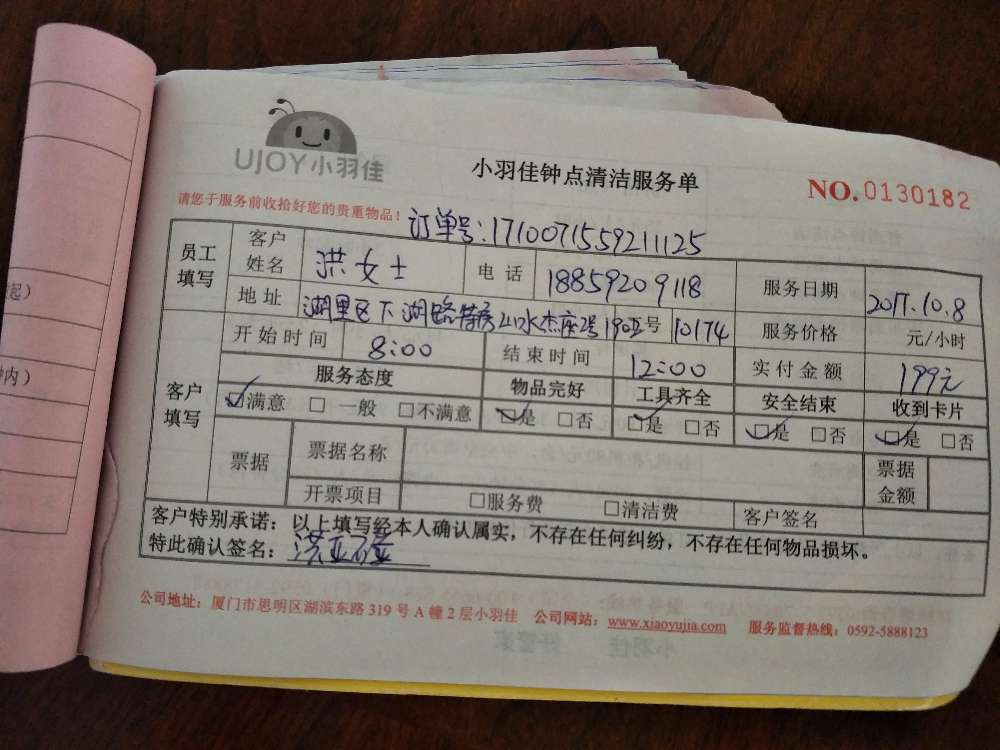 UJOY小羽佳
小羽佳钟点清洁服务单
NO.0130182
请您于服务前收拾好您的贵重物品！
订单号:1710071559211125
员工填写
客户姓名 洪女士 电话 18859209118 服务日期 2017.10.8
地址 湖里区下湖路特房山水杰座2号190 号 10174 服务价格 元/小时
开始时间 8:00 结束时间 12:00 实付金额 199元
客户填写
服务态度 物品完好 工具齐全 安全结束 收到卡片
☑满意 □一般 □不满意 ☑是 □否 ☑是 □否 ☑是 □否 ☑是 □否
票据 票据名称 票据金额
开票项目 □服务费 □清洁费 客户签名
客户特别承诺：以上填写经本人确认属实，不存在任何纠纷，不存在任何物品损坏。
特此确认签名：洪亚
公司地址：厦门市思明区湖滨东路 319 号 A 幢 2 层小羽佳 公司网站：www.xiaoyujia.com 服务监督热线：0592-5888123
起）
钟内）